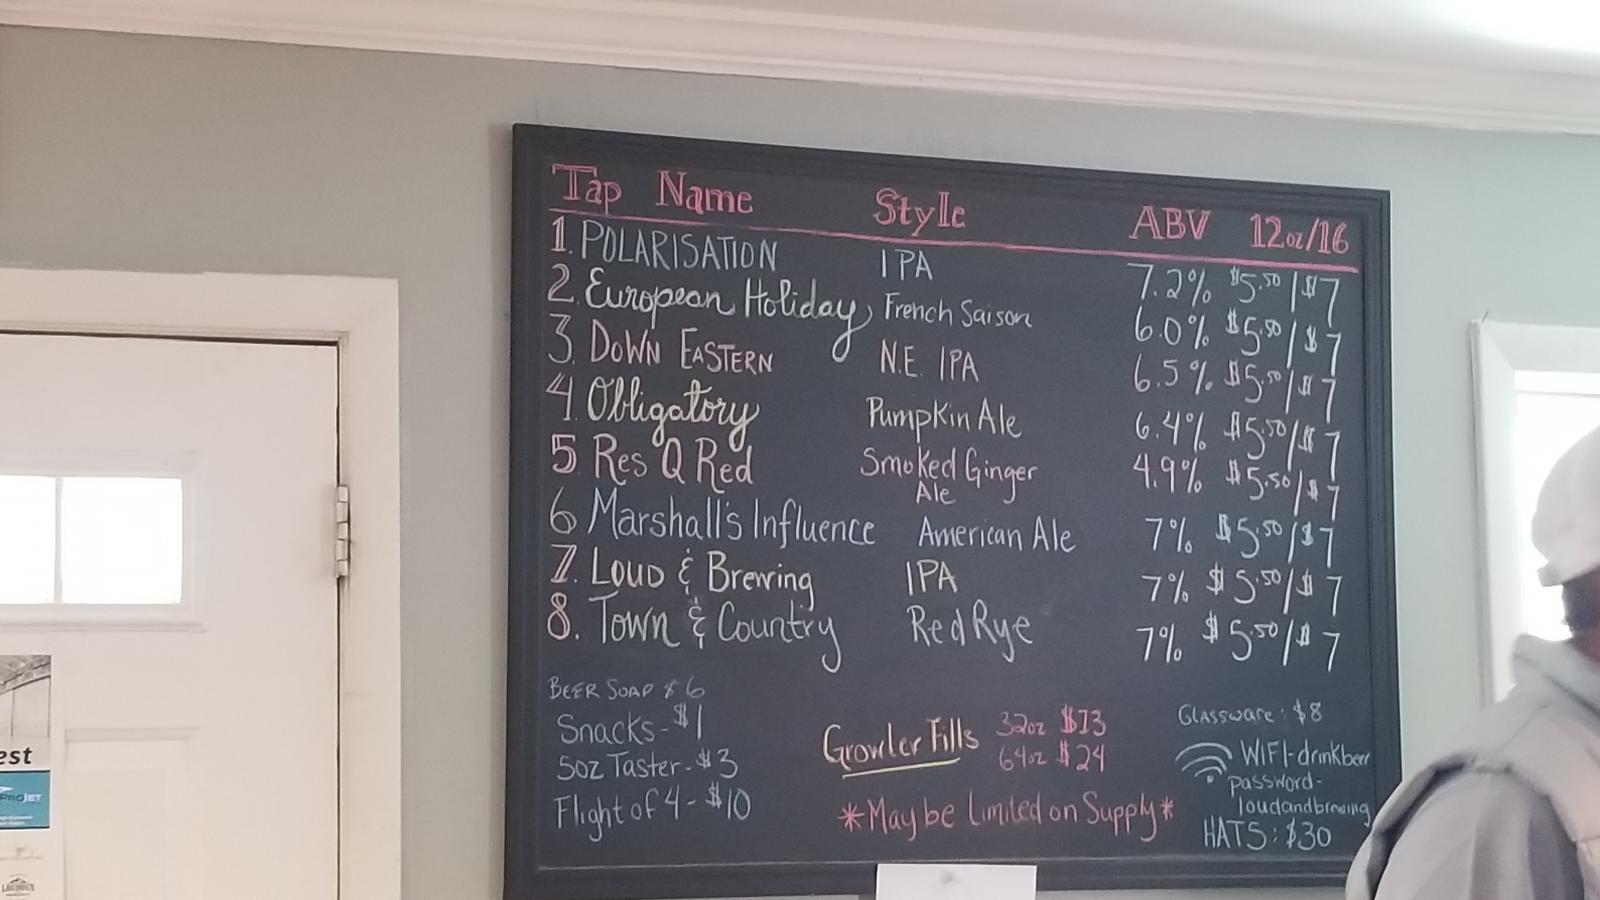 Tap Name Style ABV 12oz/16
1. POLARISATION IPA 7.2% $5.50/$7
2. European Holiday French Saison 6.0% $5.50/$7
3. DOWN EASTERN N.E. IPA 6.5% $5.50/$7
4. Obligatory Pumpkin Ale 6.4% $5.50/$7
5 Res Q Red Smoked Ginger Ale 4.9% $5.50/$7
6 Marshall's Influence American Ale 7% $5.50/$7
7. LOUD & Brewing IPA 7% $5.50/$7
8. Town & Country Red Rye 7% $5.50/$7
BEER SOAP $6
Snacks - $1
5oz Taster - $3
Flight of 4 - $10
Growler Fills 32oz $13
64oz $24
*May be Limited on Supply*
GLASSWARE: $8
WIFI - drinkbeer
password -
loudandbrewing
HATS: $30
est
PROJET
LOUDOUN